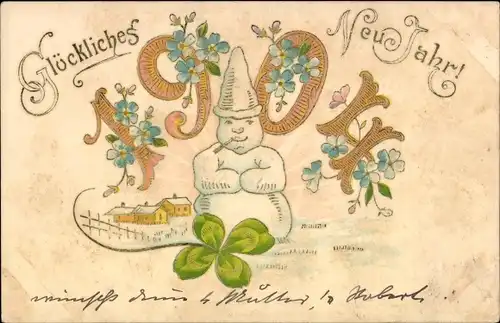 Glöckliches Neu Jahr!
1904
wünscht Mutter, Robert